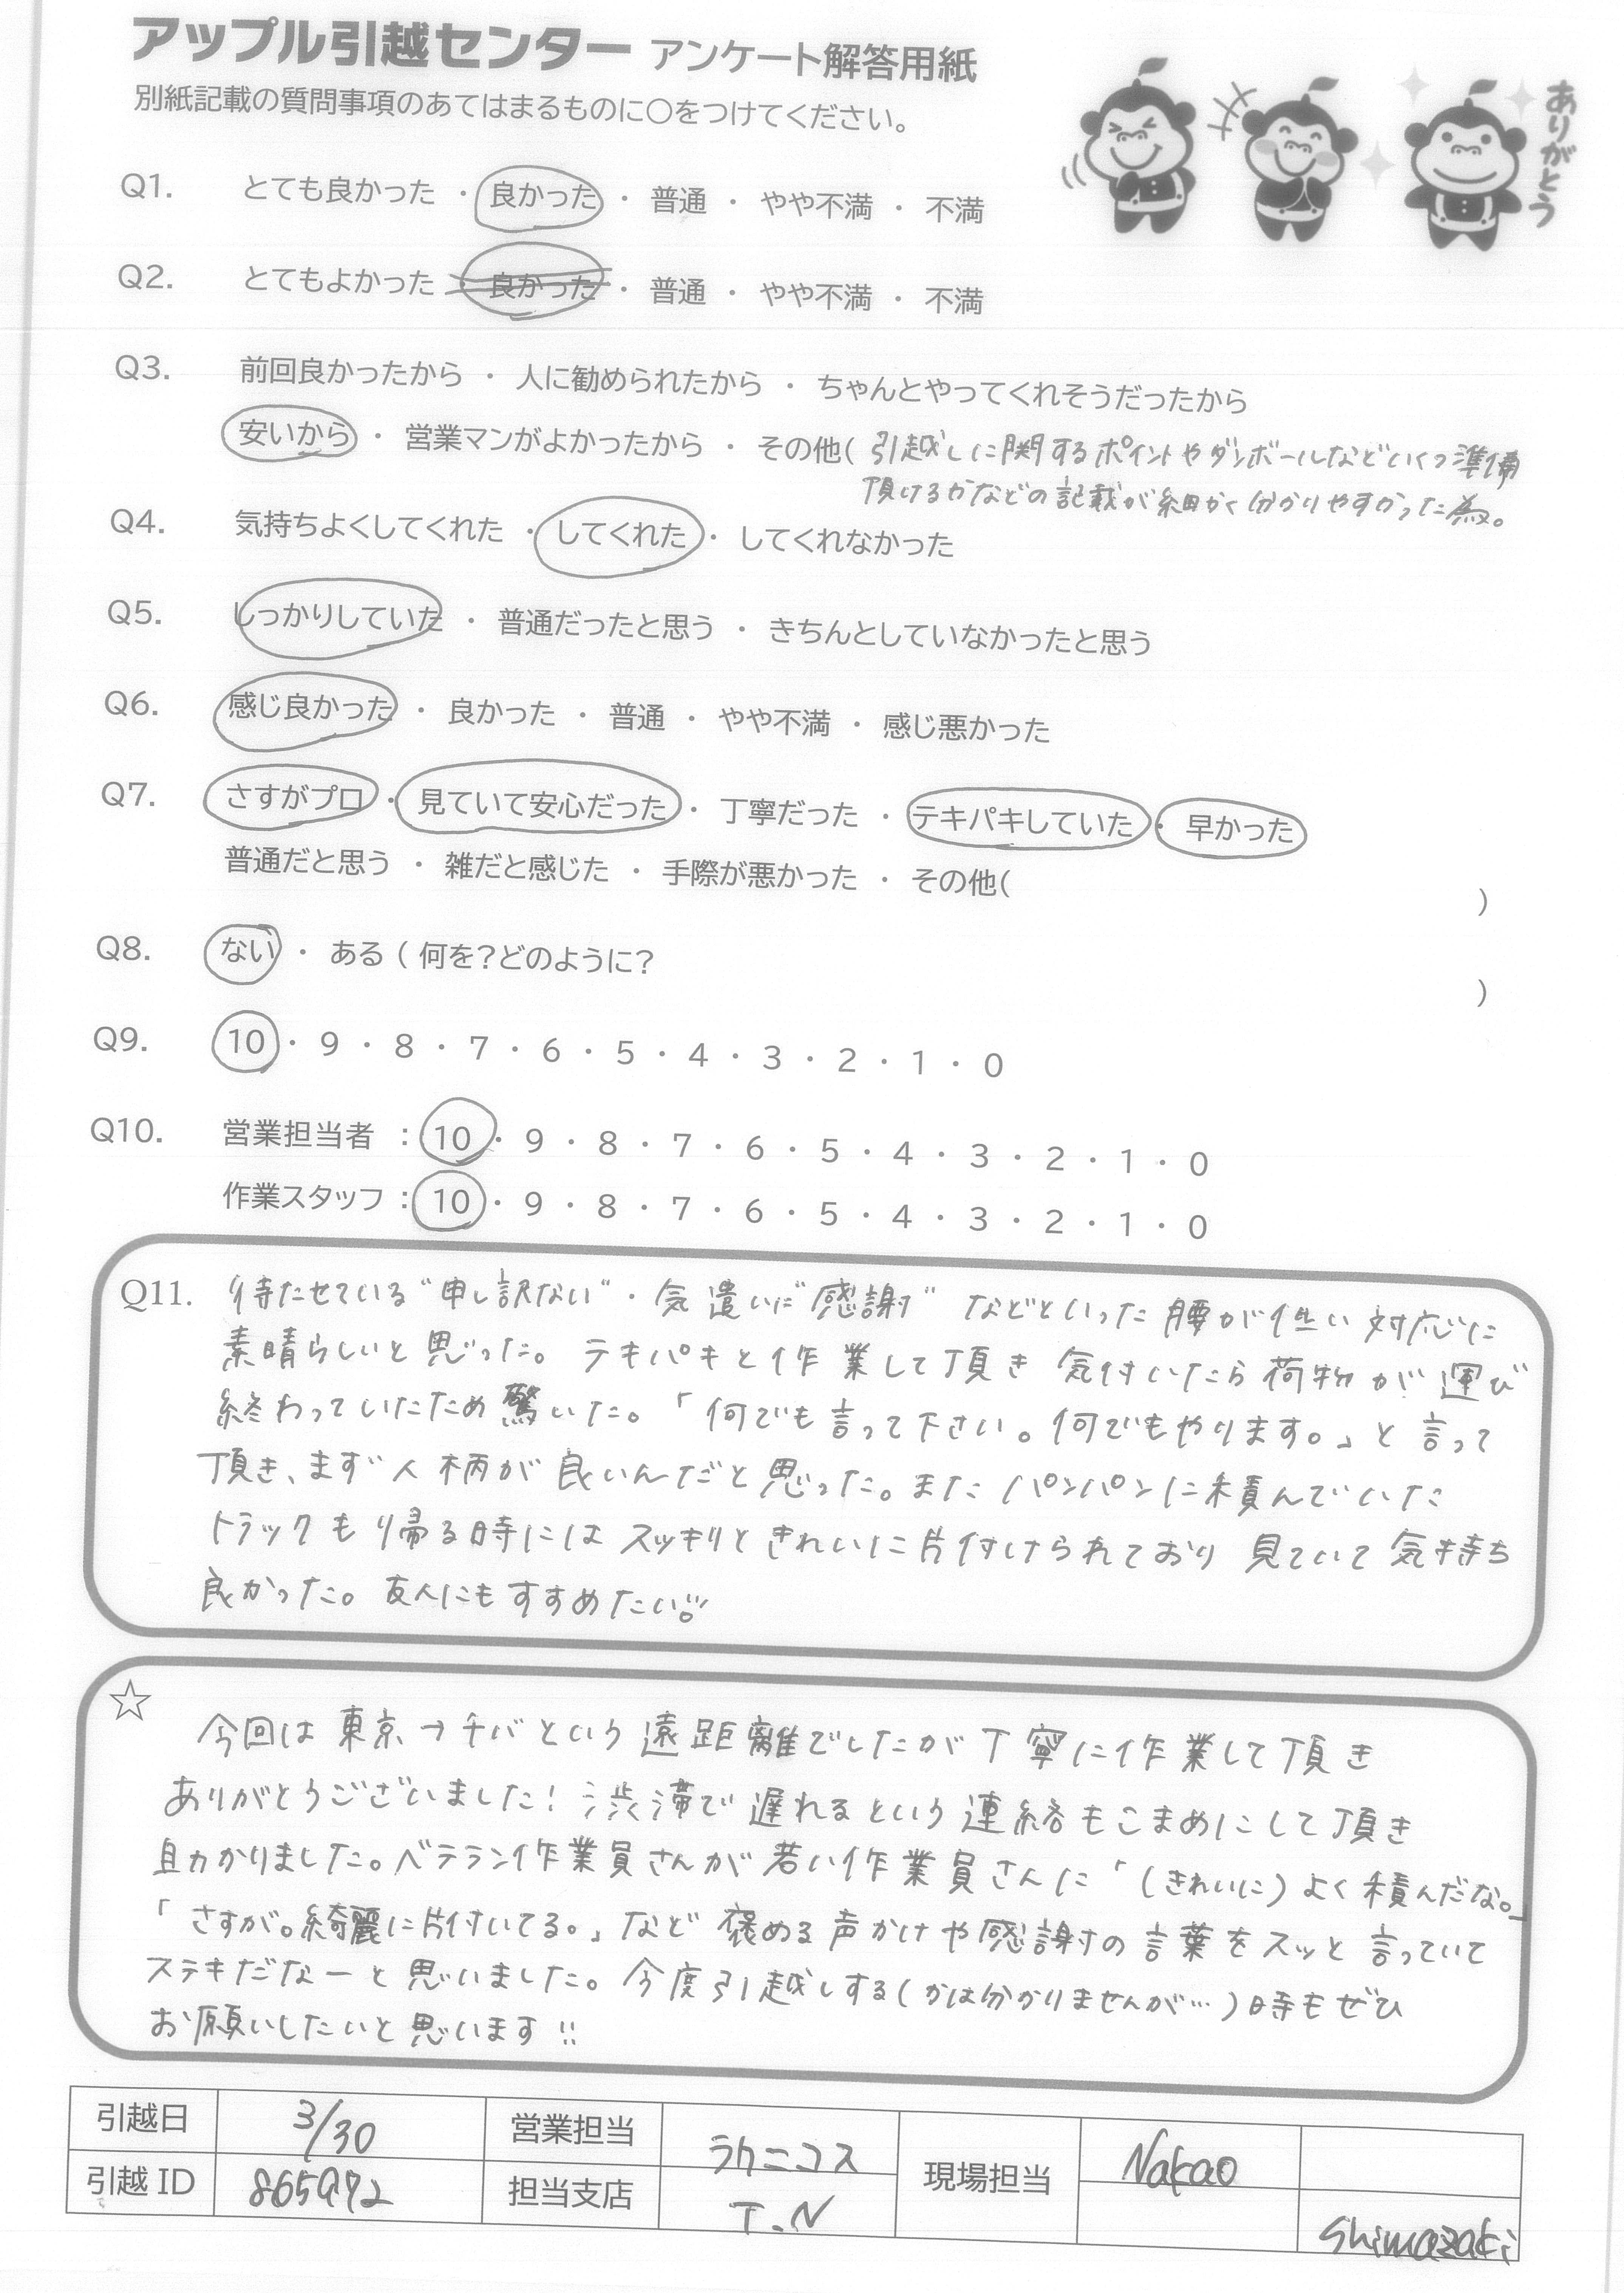 アップル引越センター アンケート解答用紙
別紙記載の質問事項のあてはまるものに○をつけてください。
ありがとう
Q1. とても良かった ・ 良かった ・ 普通 ・ やや不満 ・ 不満
Q2. とてもよかった ・ 良かった ・ 普通 ・ やや不満 ・ 不満
Q3. 前回良かったから ・ 人に勧められたから ・ ちゃんとやってくれそうだったから
安いから ・ 営業マンがよかったから ・ その他( 引越しに関するポイントやダンボールなどいくつ準備
頂けるかなどの記載が細かく分かりやすかった為。
Q4. 気持ちよくしてくれた ・ してくれた ・ してくれなかった
Q5. しっかりしていた ・ 普通だったと思う ・ きちんとしていなかったと思う
Q6. 感じ良かった ・ 良かった ・ 普通 ・ やや不満 ・ 感じ悪かった
Q7. さすがプロ ・ 見ていて安心だった ・ 丁寧だった ・ テキパキしていた ・ 早かった
普通だと思う ・ 雑だと感じた ・ 手際が悪かった ・ その他( )
Q8. ない ・ ある ( 何を?どのように? )
Q9. 10 ・ 9 ・ 8 ・ 7 ・ 6 ・ 5 ・ 4 ・ 3 ・ 2 ・ 1 ・ 0
Q10. 営業担当者 : 10 ・ 9 ・ 8 ・ 7 ・ 6 ・ 5 ・ 4 ・ 3 ・ 2 ・ 1 ・ 0
作業スタッフ : 10 ・ 9 ・ 8 ・ 7 ・ 6 ・ 5 ・ 4 ・ 3 ・ 2 ・ 1 ・ 0
Q11. 待たせている"申し訳ない"・気遣いに"感謝" などといった腰が低い対応に
素晴らしいと思った。テキパキと作業して頂き 気付いたら荷物が運び
終わっていたため驚いた。「何でも言って下さい。何でもやります。」と言って
頂き、まず人柄が良いんだと思った。またパンパンに積んでいた
トラックも帰る時にはスッキリときれいに片付けられており 見ていて気持ち
良かった。友人にもすすめたい。"
☆
今回は東京→チバという遠距離でしたが丁寧に作業して頂き
ありがとうございました!渋滞で遅れるという連絡もこまめにして頂き
助かりました。ベテラン作業員さんが若い作業員さんに「(きれいに)よく積んだな。」
「さすが。綺麗に片付いてる。」など褒める声かけや感謝の言葉をスッと言っていて
ステキだなーと思いました。今度引越しする(かは分かりませんが…)時もぜひ
お願いしたいと思います!!
引越日 3/30 営業担当 ラクニコス 現場担当 Nakao
引越ID 865972 担当支店 T.N Shimazaki